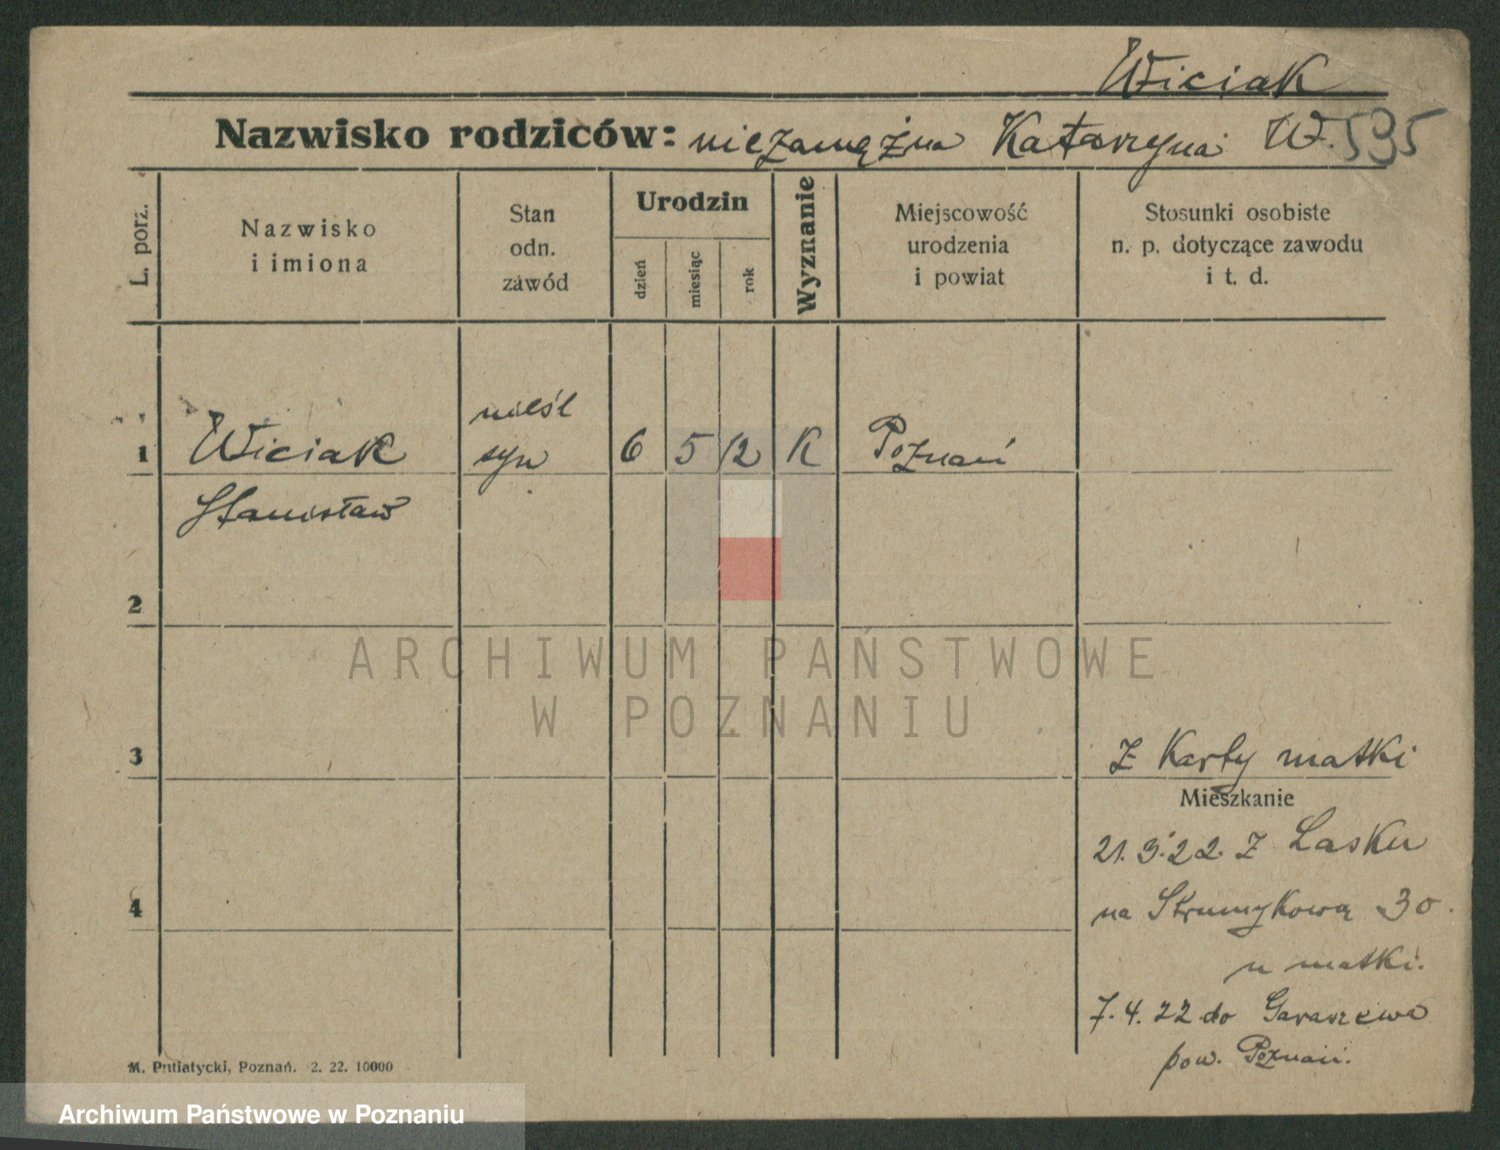 Wiciak
Nazwisko rodziców: niezamężna Katarzyna W. 535
L. porz.
Nazwisko
i imiona
Stan
odn.
zawód
Urodzin
dzień
miesiąc
rok
Wyznanie
Miejscowość
urodzenia
i powiat
Stosunki osobiste
n. p. dotyczące zawodu
i t. d.
nieśl
1 Wiciak syn 6 5 12 K Poznań
Stanisław
2
ARCHIWUM PAŃSTWOWE
W POZNANIU
3
z Karty matki
Mieszkanie
21.3.22 z Lasku
4
na Strumykową 30.
u matki.
7.4.22 do Garaszewa
pow. Poznań.
M. Putiatycki, Poznań. 2. 22. 10000
Archiwum Państwowe w Poznaniu